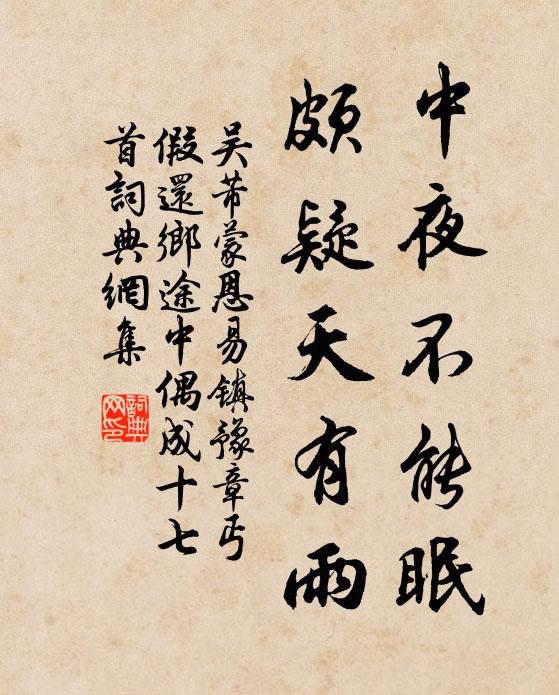 中夜不能眠
頗疑天有雨
吴芾蒙恩易鎮豫章丐
假還鄉途中偶成十七
首詞典網集
詞典
网印